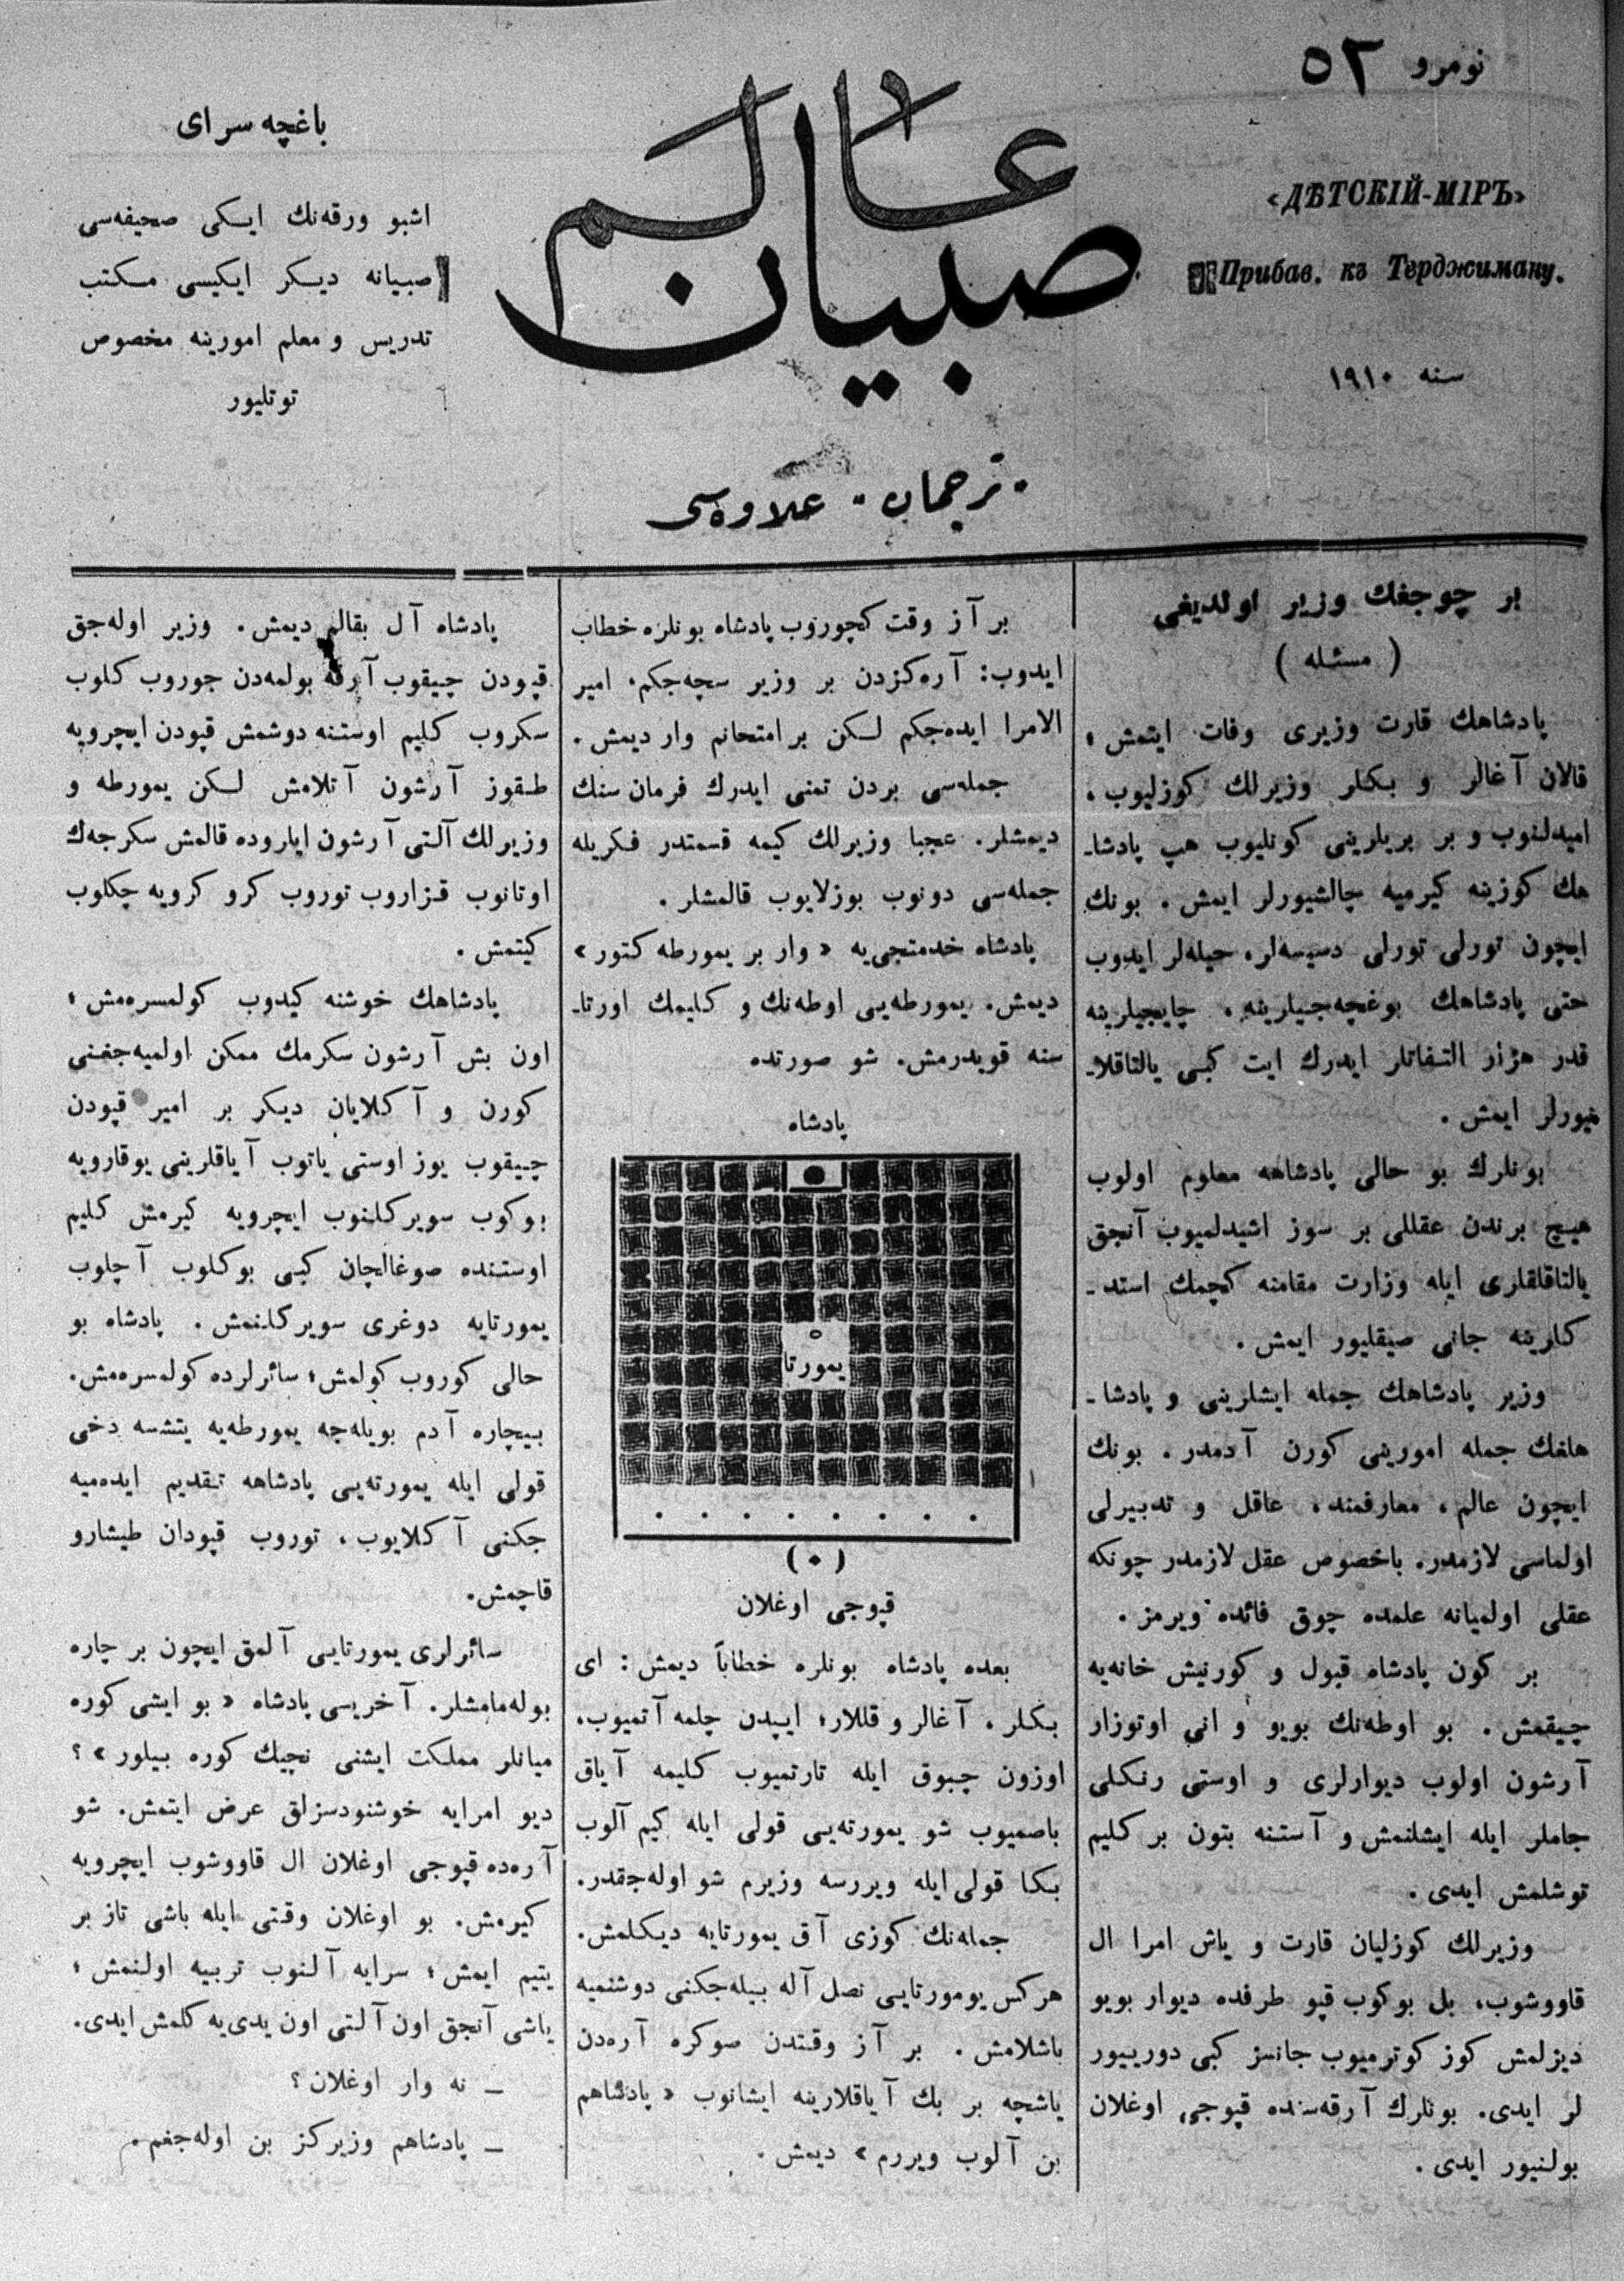 نومرو ٥٢
«ДѢТСКІЙ-МІРЪ»
Прибав. къ Терджиману.
سنه ١٩١٠
عالم
صبيان
ترجمان علاوه‌سى
باغچه سراى
اشبو ورقه‌نك ايكى صحيفه‌سى
صبيانه ديكر ايكيسى مكتب
تدريس و معلم امورينه مخصوص
توتليور
بر چوجغك وزير اولديغى
( مسئله )
پادشاهك قارت وزيرى وفات ايتمش ؛
قالان آغالر و بكلر وزيرلك كوزليوب ،
اميدلنوب و بر بريلرينى كونليوب هپ پادشاـ
هك كوزينه كيرميه چالشيورلر ايمش . بونك
ايچون تورلى تورلى دسيسه‌لر، حيله‌لر ايدوب
حتى پادشاهك بوغچه‌جيلرينه ، چايجيلرينه
قدر هژار التفاتلر ايدرك ايت كبى يالتاقلاـ
نيورلر ايمش .
بونلرك بو حالى پادشاهه معلوم اولوب
هيچ برندن عقللى بر سوز اشيدلميوب آنجق
يالتاقلقلرى ايله وزارت مقامنه كچمك استدـ
كلرينه جانى صيقليور ايمش .
وزير پادشاهك جمله ايشلرينى و پادشاـ
هلغك جمله امورينى كورن آدمدر . بونك
ايچون عالم ، معارفمند ، عاقل و تدبيرلى
اولماسى لازمدر. باخصوص عقل لازمدر چونكه
عقلى اولميانه علمده چوق فائده ويرمز .
بر كون پادشاه قبول و كورنيش خانه‌يه
چيقمش . بو اوطه‌نك بويو و انى اوتوزار
آرشون اولوب ديوارلرى و اوستى رنكلى
جاملر ايله ايشلنمش و آستنه بتون بر كليم
توشلمش ايدى .
وزيرلك كوزليان قارت و ياش امرا ال
قاووشوب، بل بوكوب قپو طرفده ديوار بويو
ديزلمش كوز كوترميوب جانسز كبى دورييور
لر ايدى. بونلرك آرقه‌سنده قپوجى اوغلان
بولنيور ايدى .
بر آز وقت كچوروب پادشاه بونلره خطاب
ايدوب: آره‌كزدن بر وزير سچه‌جكم. امير
الامرا ايده‌جكم لكن بر امتحانم وار ديمش .
جمله‌سى بردن تمنى ايدرك فرمان سنك
ديمشلر. عجبا وزيرلك كيمه قسمتدر فكريله
جمله‌سى دونوب بوزلايوب قالمشلر .
پادشاه خدمتجى‌يه « وار بر يمورطه كتور »
ديمش. يمورطه‌يى اوطه‌نك و كليمك اورتاـ
سنه قويدرمش. شو صورتده
پادشاه
يمورتا
قپوجى اوغلان
بعده پادشاه بونلره خطاباً ديمش : اى
بكلر ، آغالر و قللار ؛ ايپدن چلمه آتميوب،
اوزون چبوق ايله تارتميوب كليمه آياق
باصميوب شو يمورته‌يى قولى ايله كيم آلوب
بكا قولى ايله ويررسه وزيرم شو اوله‌جقدر.
جمله‌نك كوزى آق يمورتايه ديكلمش.
هركس يومورتايى نصل آله بيله‌جكنى دوشنميه
باشلامش . بر آز وقتدن صوكره آره‌دن
ياشچه بر بك آياقلارينه ايشانوب « پادشاهم
بن آلوب ويررم » ديمش .
پادشاه آل بقالم ديمش. وزير اوله‌جق
قپودن چيقوب آرقه بولمه‌دن جوروب كلوب
سكروب كليم اوستنه دوشمش قپودن ايچرويه
طقوز آرشون آتلامش لكن يمورطه و
وزيرلك آلتى آرشون ايلروده قالمش سكرجه‌ك
اوتانوب قزاروب توروب كرو كرويه چكلوب
كيتمش .
پادشاهك خوشنه كيدوب كولمسره‌مش ؛
اون بش آرشون سكرمك ممكن اولميه‌جغنى
كورن و آكلايان ديكر بر امير قپودن
چيقوب يوز اوستى ياتوب آياقلرينى يوقارويه
بوكوب سويركلنوب ايچرويه كيرمش كليم
اوستنده صوغالچان كبى بوكلوب آچلوب
يمورتايه دوغرى سويركلنمش . پادشاه بو
حالى كوروب كولمش ؛ سائرلرده كولمسره‌مش.
بيچاره آدم بويله‌جه يمورطه‌يه يتشسه دخى
قولى ايله يمورته‌يى پادشاهه تقديم ايده‌ميه
جكنى آكلايوب ، توروب قپودان طيشارو
قاچمش.
سائرلرى يمورتايى آلمق ايچون بر چاره
بوله‌مامشلر. آخريسى پادشاه « بو ايشى كوره
ميانلر مملكت ايشنى نچيك كوره بيلور » ؟
ديو امرايه خوشنودسزلق عرض ايتمش. شو
آره‌ده قپوجى اوغلان ال قاووشوب ايچرويه
كيرمش. بو اوغلان وقتى ايله باشى تاز بر
يتيم ايمش ؛ سرايه آلنوب تربيه اولنمش ؛
ياشى آنجق اون آلتى اون يدى‌يه كلمش ايدى.
ـ نه وار اوغلان ؟
ـ پادشاهم وزيركز بن اوله‌جغم.